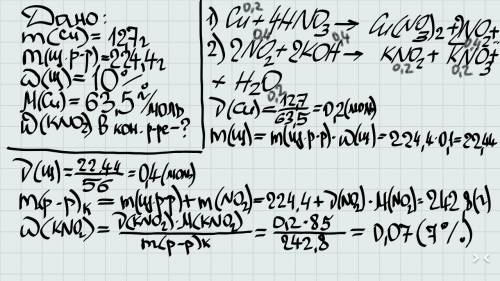 Дано:
m(Cu)=127г
m(щ.р-р)=224,4г
ω(щ)=10%
M(Cu)=63,5 г/моль
ω(KNO₂) в кон. р-ре-?
1) Cu+4HNO₃→ Cu(NO₃)₂+2NO₂+
0,2 0,4
2) 2NO₂+2KOH→ KNO₂+KNO₃+
0,4 0,2 0,2
+ H₂O
ν(Cu)=127/63,5=0,2(моль)
m(щ)=m(щ.р-р)·ω(щ)=224,4·0,1=22,44
ν(щ)=22,44/56=0,4(моль)
m(р-р)к=m(щ.р-р)+m(NO₂)=224,4+ν(NO₂)·M(NO₂)=242,8(г)
ω(KNO₂)=ν(KNO₂)·M(KNO₂)/m(р-р)к=0,2·85/242,8=0,07(7%)